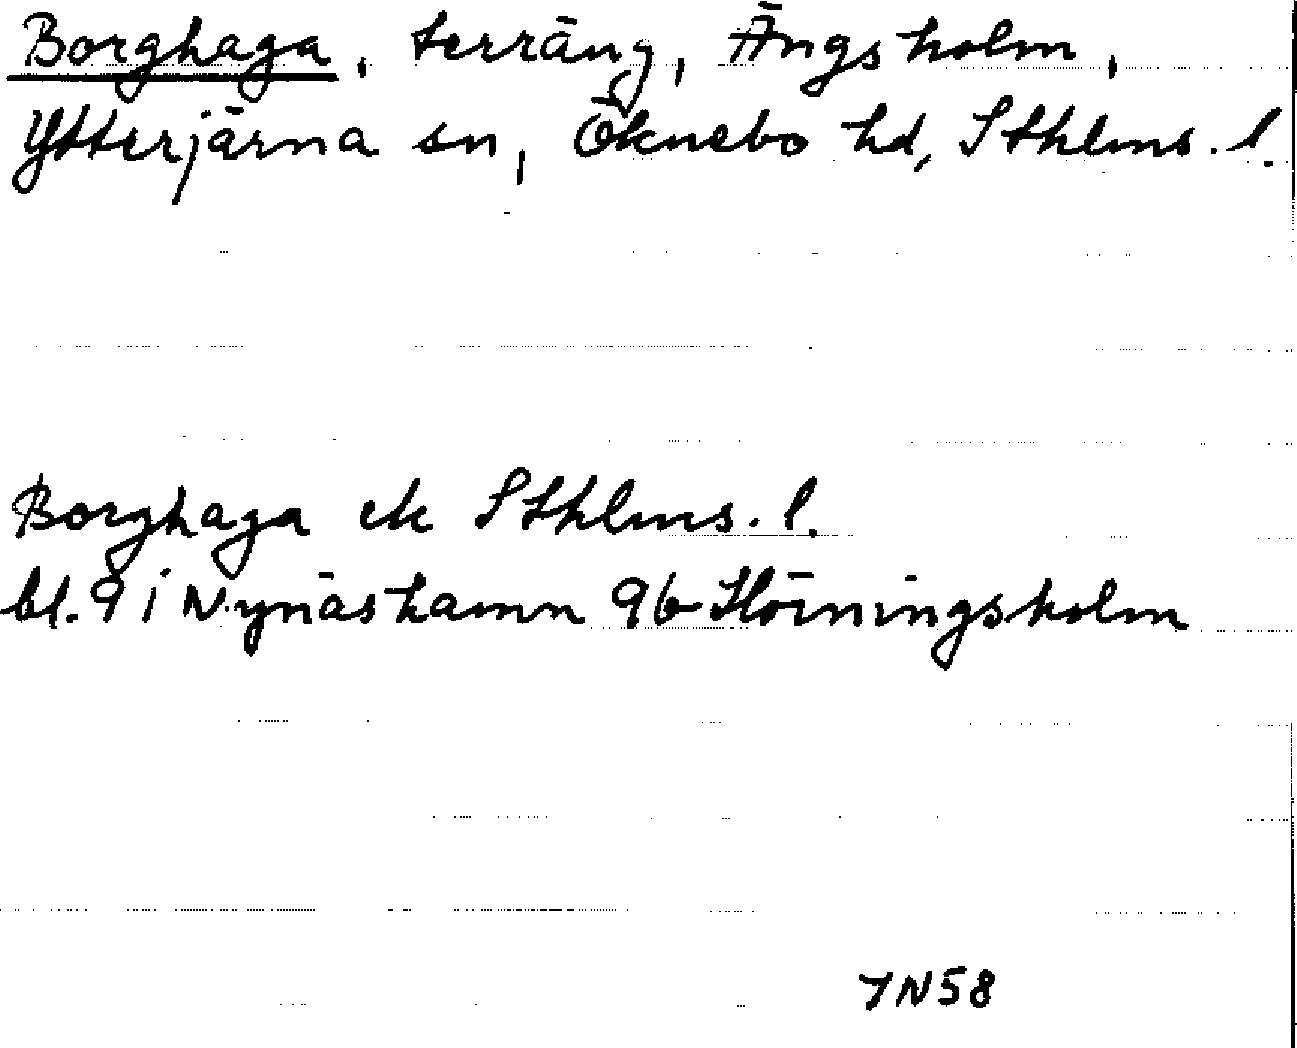 Borghaga, terräng, Ängsholm,
Ytterjärna sn, Öknebo hd, Sthlms. l.
Borghaga ek Sthlms. l.
bl. 9 i Nynäshamn 96 Hörningsholm
7N58